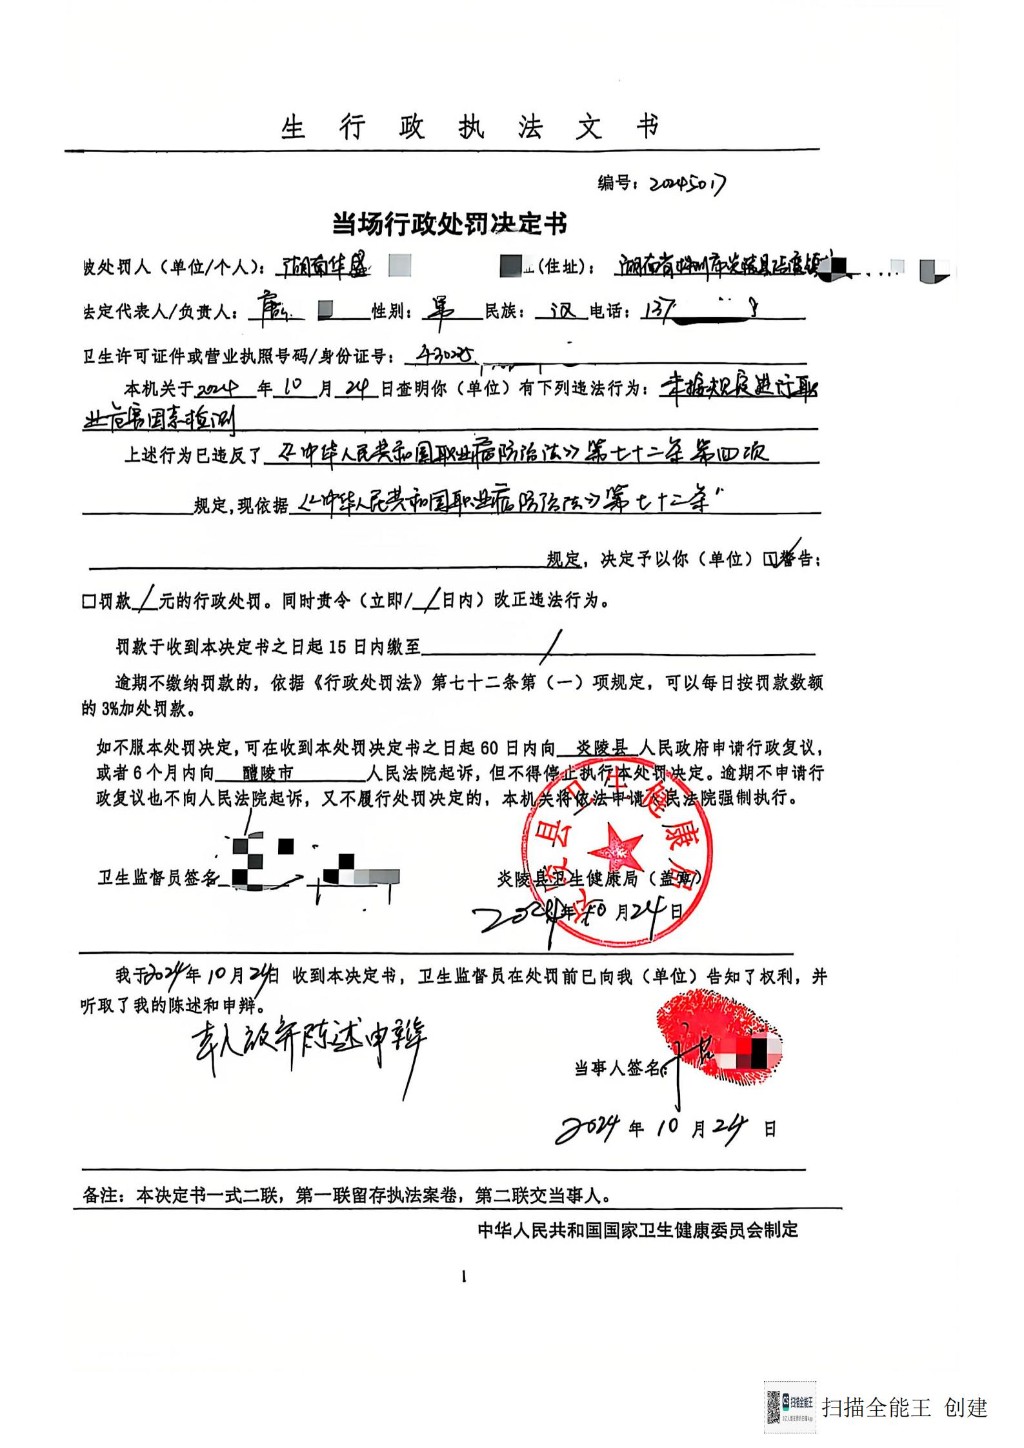 生行政执法文书
编号：2024S017
当场行政处罚决定书
被处罚人（单位/个人）：湖南华盛 （住址）：湖南省株洲市炎陵县
法定代表人/负责人：唐 性别：男 民族：汉 电话：137
卫生许可证件或营业执照号码/身份证号：43025
本机关于2024年10月24日查明你（单位）有下列违法行为：未按规定进行职
业危害因素检测
上述行为已违反了《中华人民共和国职业病防治法》第七十二条第四项
规定，现依据《中华人民共和国职业病防治法》第七十二条
规定，决定予以你（单位）☑警告；
□罚款/元的行政处罚。同时责令（立即/ /日内）改正违法行为。
罚款于收到本决定书之日起15日内缴至 /
逾期不缴纳罚款的，依据《行政处罚法》第七十二条第（一）项规定，可以每日按罚款数额
的3%加处罚款。
如不服本处罚决定，可在收到本处罚决定书之日起60日内向 炎陵县 人民政府申请行政复议，
或者6个月内向 醴陵市 人民法院起诉，但不得停止执行本处罚决定。逾期不申请行
政复议也不向人民法院起诉，又不履行处罚决定的，本机关将依法申请人民法院强制执行。
炎陵县卫生健康局
卫生监督员签名 炎陵县卫生健康局（盖章）
2024年10月24日
我于2024年10月24日 收到本决定书，卫生监督员在处罚前已向我（单位）告知了权利，并
听取了我的陈述和申辩。
本人放弃陈述申辩
当事人签名：
2024年10月24日
备注：本决定书一式二联，第一联留存执法案卷，第二联交当事人。
中华人民共和国国家卫生健康委员会制定
1
扫描全能王 创建